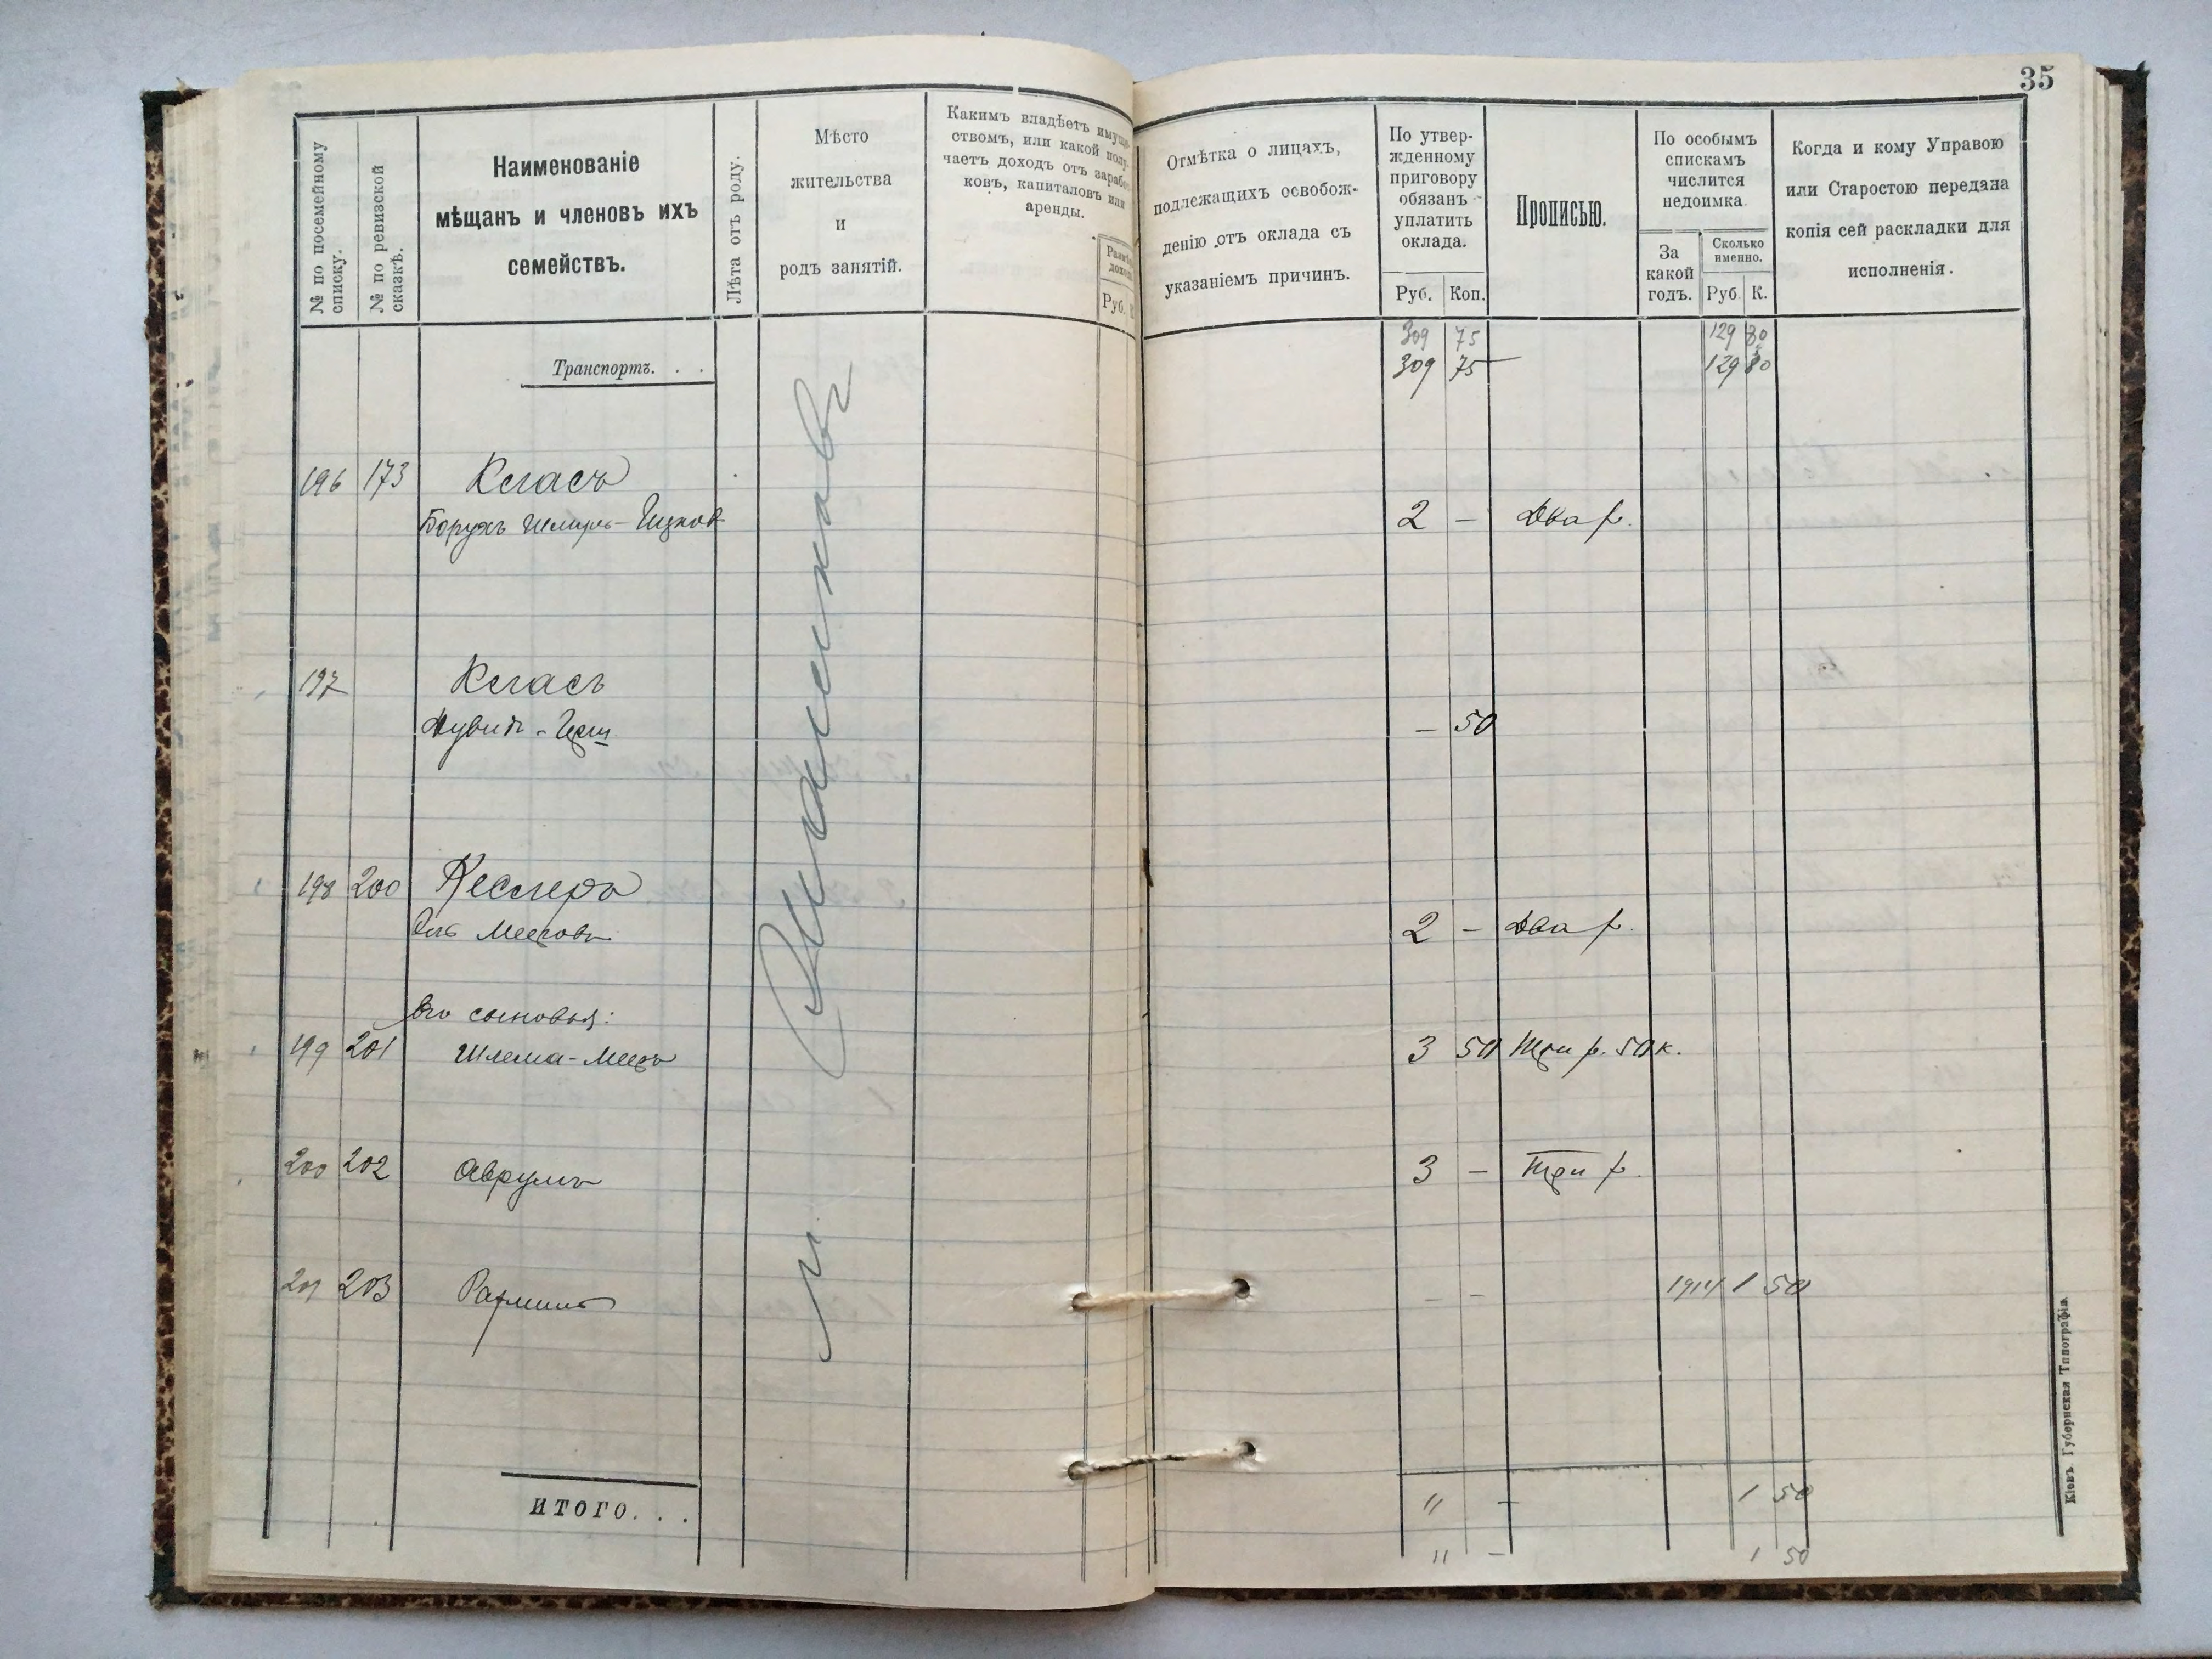 35
№ по посемейному списку.
№ по ревизской сказкѣ.
Наименованіе
мѣщанъ и членовъ ихъ
семействъ.
Лѣта отъ роду.
Мѣсто
жительства
и
родъ занятій.
Какимъ владѣетъ имуще-
ствомъ, или какой полу-
чаетъ доходъ отъ зарабо-
ковъ, капиталовъ или
аренды.
Руб.
Отмѣтка о лицахъ,
подлежащихъ освобож-
денію отъ оклада съ
указаніемъ причинъ.
По утвер-
жденному
приговору
обязанъ
уплатить
оклада.
Руб. Коп.
Прописью.
По особымъ
спискамъ
числится
недоимка.
За
какой
годъ.
Сколько
именно.
Руб. К.
Когда и кому Управою
или Старостою передана
копія сей раскладки для
исполненія.
309 75 129 80
Транспортъ. . . 309 75 129 80
196 173 Класъ
Борухъ Шмуль-Ицков 2 — Два р.
197 Класъ
Дувидъ - — 50
198 200 Кеслеръ
Мееровъ 2 — Два р.
Его сыновья:
199 201 Шлема-Мееръ 3 50 Три р. 50 к.
200 202 Аврумъ 3 — Три р.
201 203 — — 1914 1 50
м
ИТОГО. . . " — 1 50
" — 1 50
Кіевъ. Губернская Типографія.